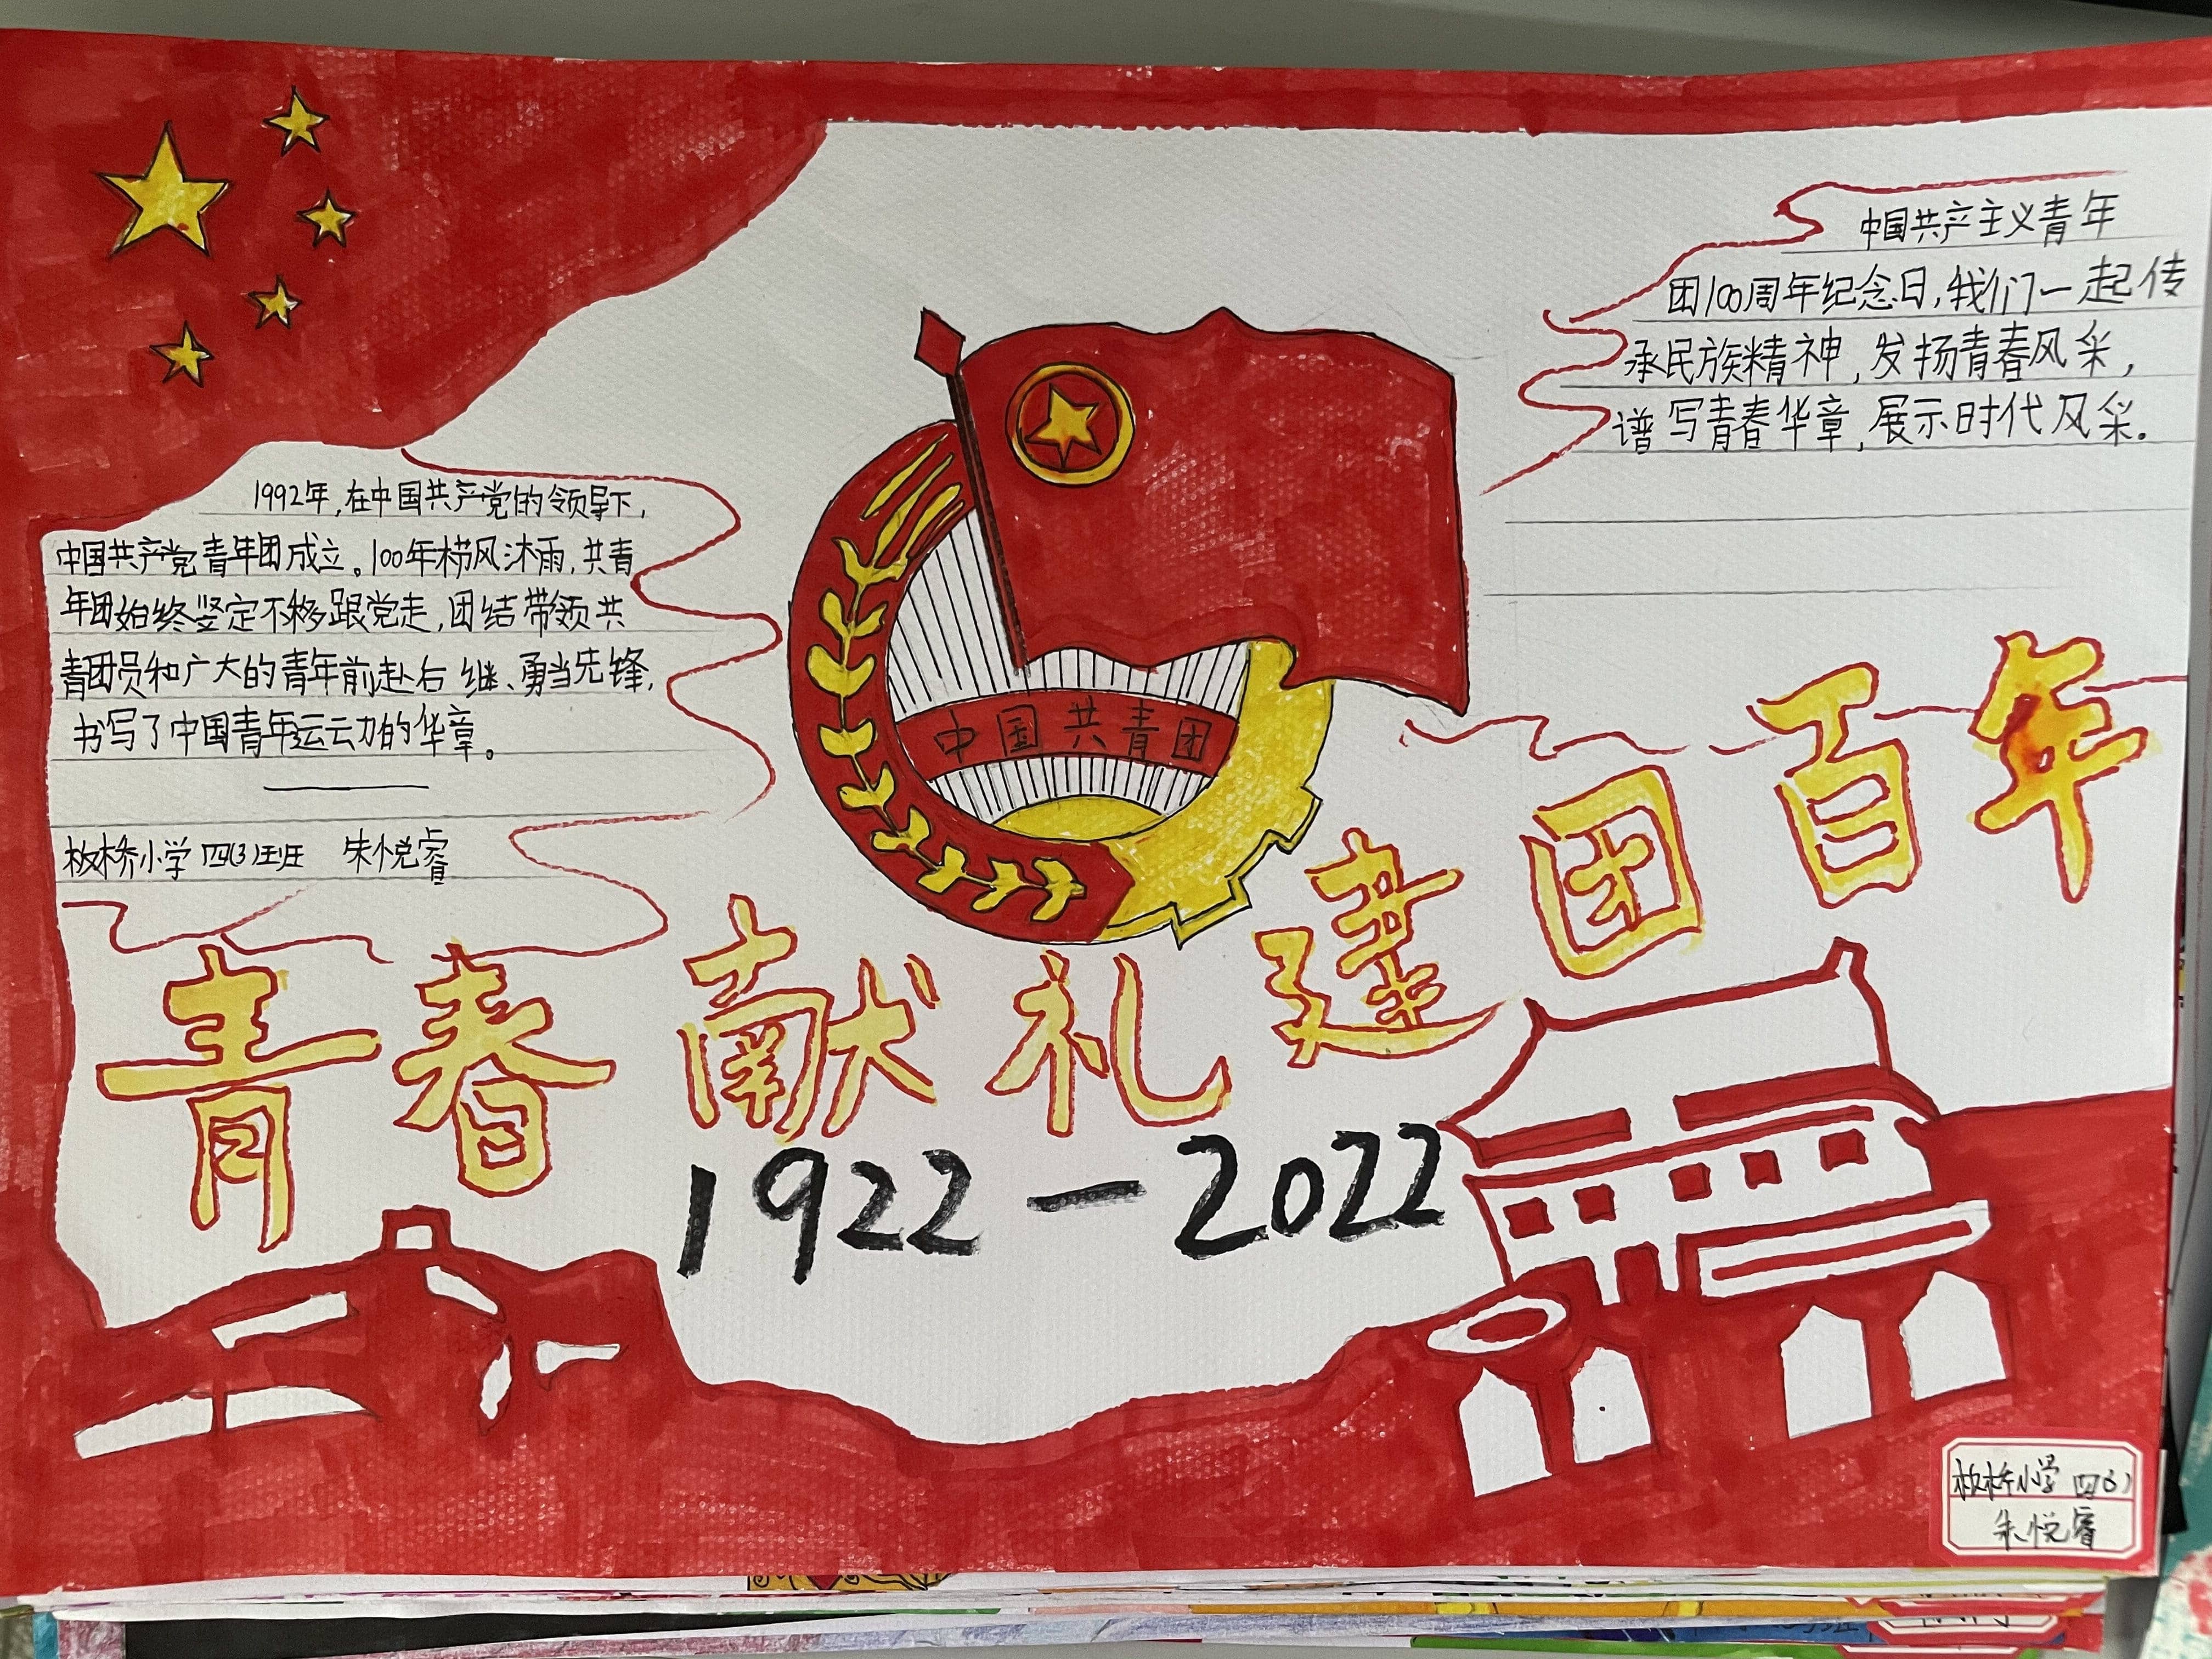 1992年,在中国共产党的领导下,
中国共产党青年团成立。100年栉风沐雨,共青
年团始终坚定不移跟党走,团结带领共
青团员和广大的青年前赴后继、勇当先锋,
书写了中国青年运动的华章。
板桥小学四(3)班 朱悦睿
中国共产主义青年
团100周年纪念日,我们一起传
承民族精神,发扬青春风采,
谱写青春华章,展示时代风采.
中国共青团
青春献礼建团百年
1922-2022
板桥小学 四(3)
朱悦睿